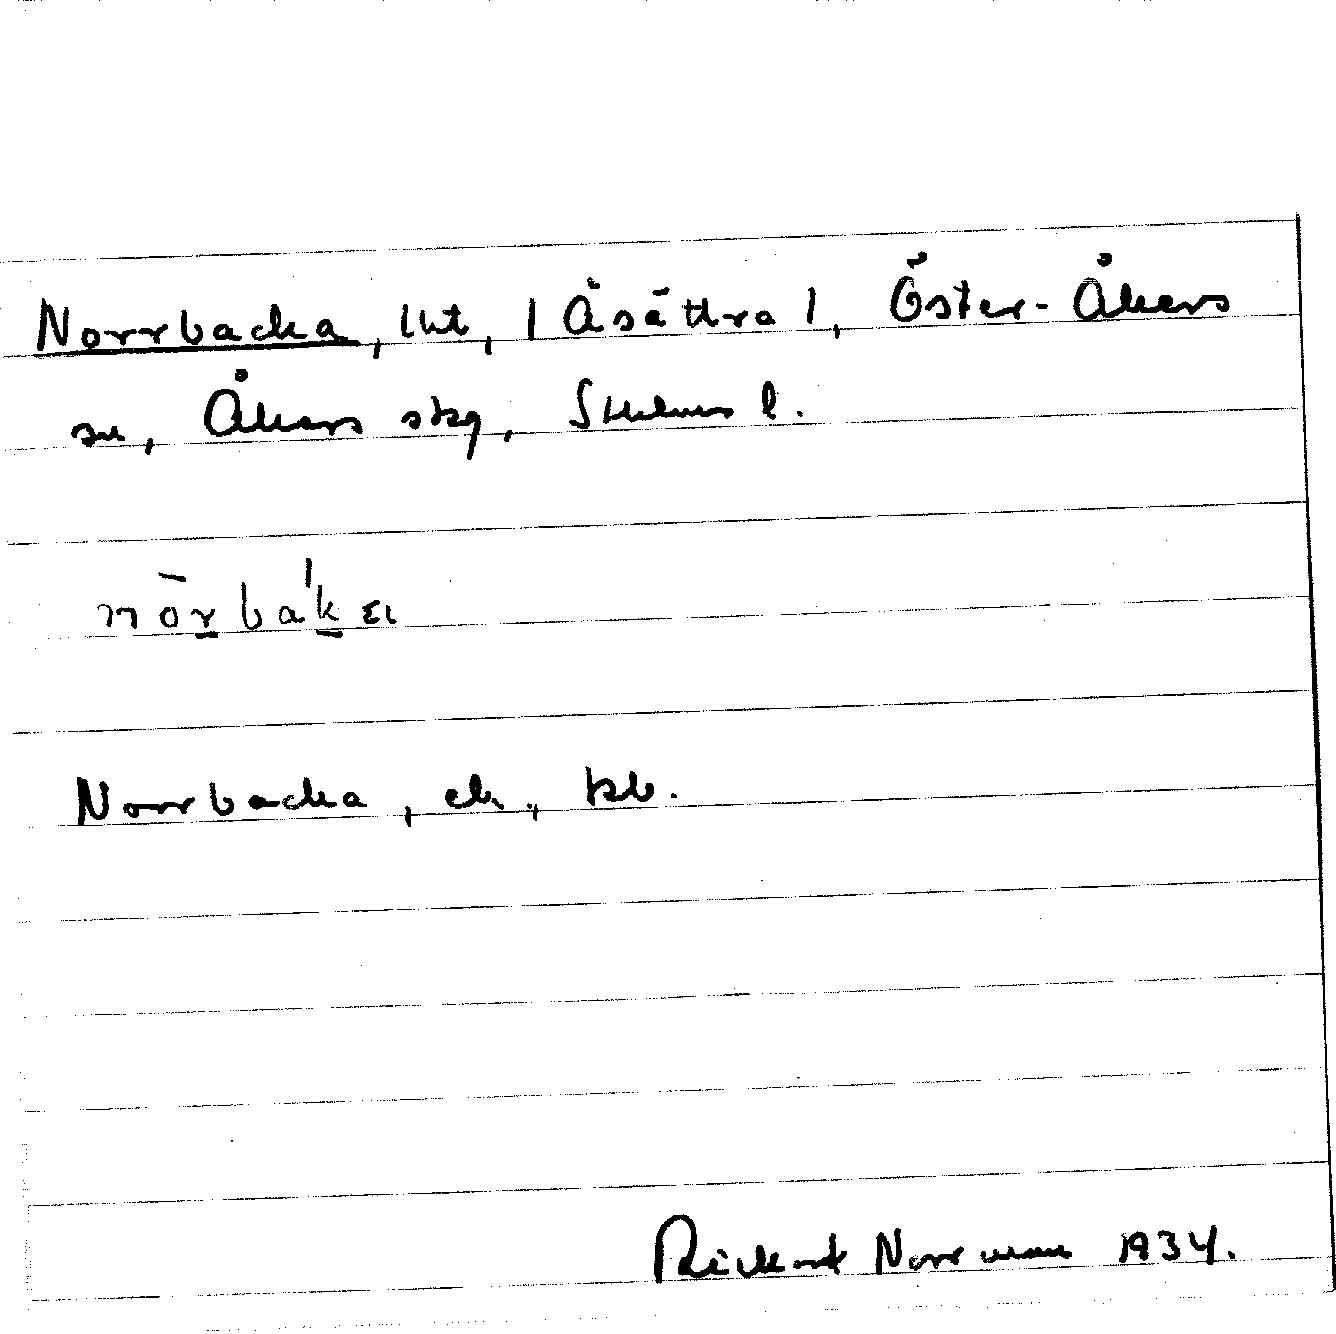 Norrbacka, lht, | Åsättra |, Öster-Åkers
sn, Åkers skg, Sthlms l.
nōrbak
Norrbacka, ek, kb.
Rickart Norrman 1934.